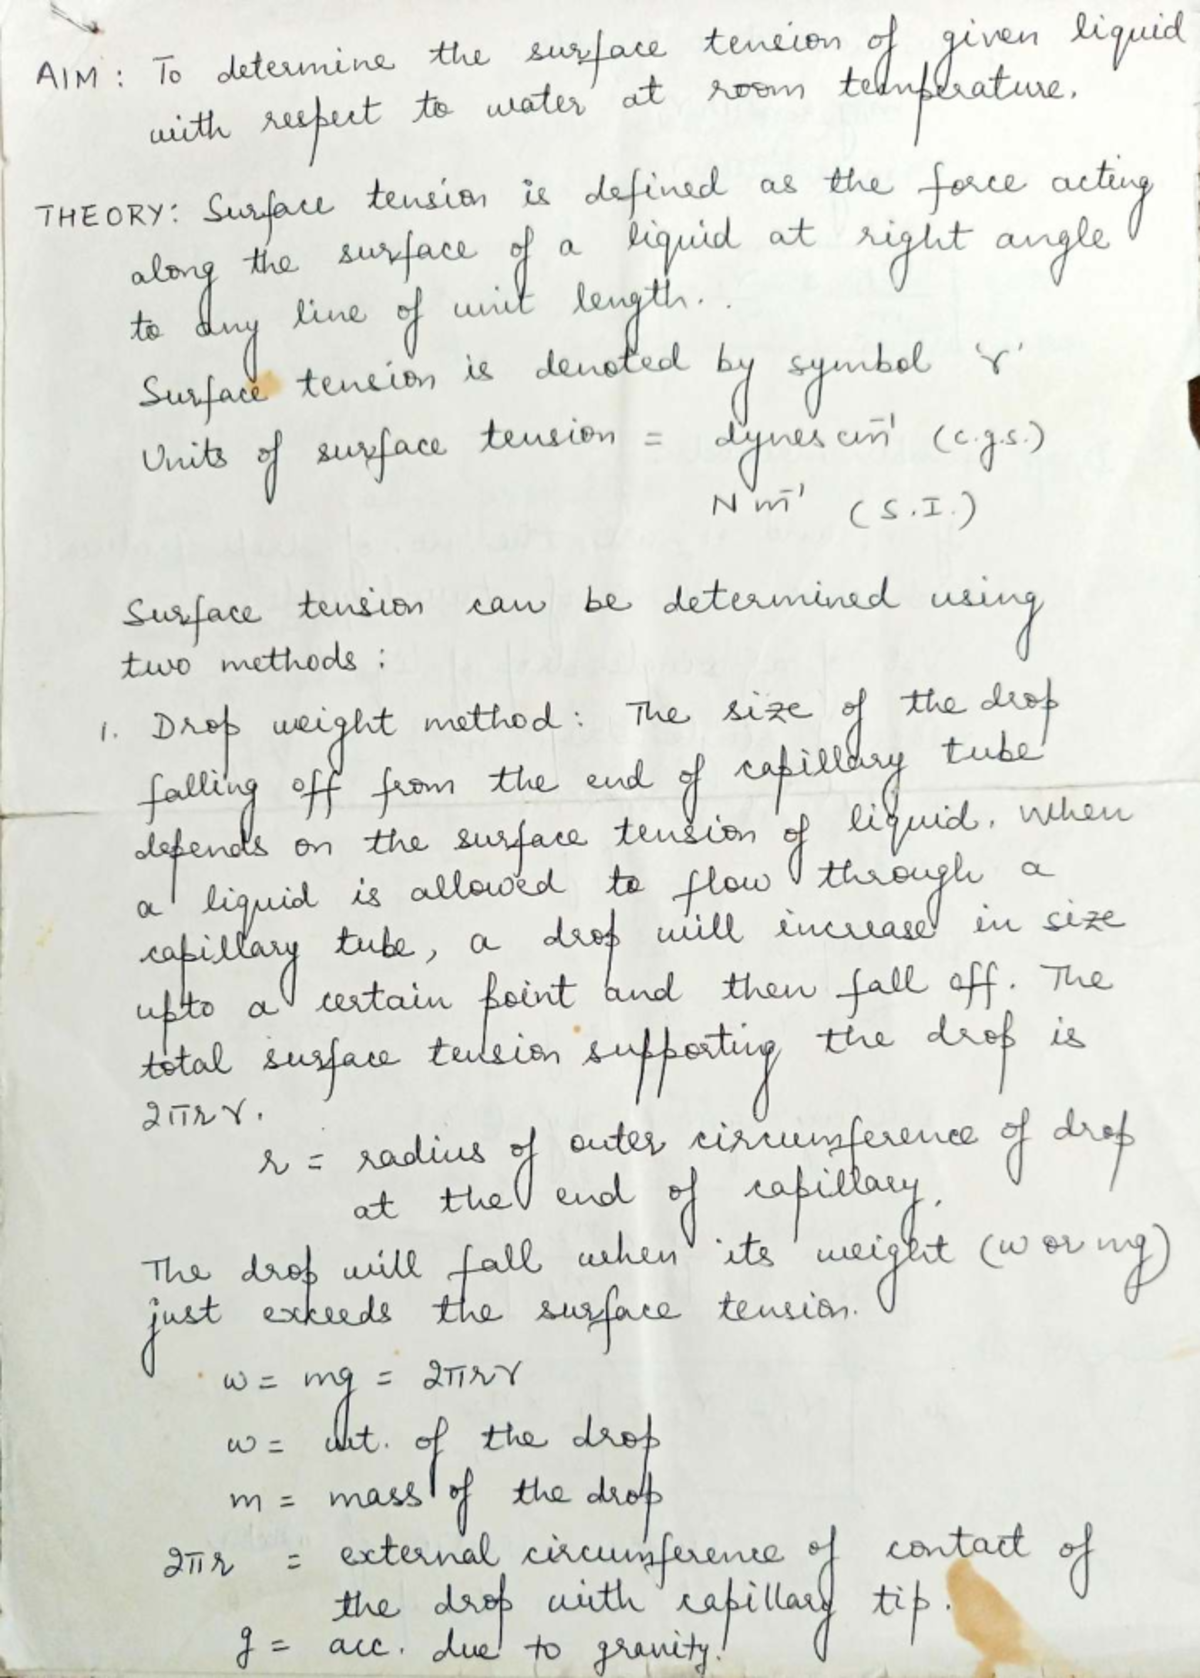 AIM : To determine the surface tension of given liquid
with respect to water at room temperature.
THEORY: Surface tension is defined as the force acting
along the surface of a liquid at right angle
to any line of unit length. .
Surface tension is denoted by symbol 'γ'
Units of surface tension = dynes cm⁻¹ (c.g.s.)
N m⁻¹ (S.I.)
Surface tension can be determined using
two methods :
1. Drop weight method: The size of the drop
falling off from the end of capillary tube
depends on the surface tension of liquid. When
a liquid is allowed to flow through a
capillary tube, a drop will increase in size
upto a certain point and then fall off. The
total surface tension supporting the drop is
2πrγ.
r = radius of outer circumference of drop
at the end of capillary.
The drop will fall when its weight (w or mg)
just exceeds the surface tension.
w = mg = 2πrγ
w = wt. of the drop
m = mass of the drop
2πr = external circumference of contact of
the drop with capillary tip.
g = acc. due to gravity.